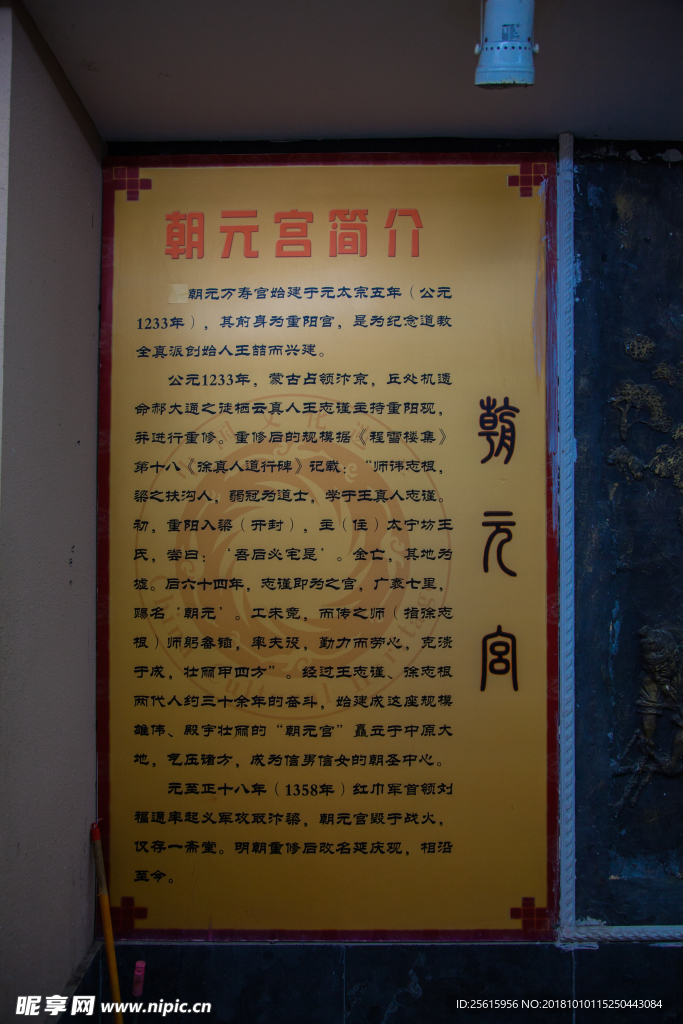 朝元宫简介
朝元万寿宫始建于元太宗五年（公元
1233年），其前身为重阳宫，是为纪念道教
全真派创始人王喆而兴建。
公元1233年，蒙古占领汴京，丘处机遗
命郝大通之徒栖云真人王志谨主持重阳观，
并进行重修。重修后的规模据《程雪楼集》
第十八《徐真人道行碑》记载：“师讳志根，
梁之扶沟人，弱冠为道士，学于王真人志谨。
初，重阳入梁（开封），主（住）太宁坊王
氏，尝曰：‘吾后必宅是’。金亡，其地为
墟。后六十四年，志谨即为之宫，广袤七里，
赐名‘朝元’。工未竟，而传之师（指徐志
根）师躬畚锸，率夫役，勤力而劳心，克溃
于成，壮丽甲四方”。经过王志谨、徐志根
两代人约三十余年的奋斗，始建成这座规模
雄伟、殿宇壮丽的“朝元宫”矗立于中原大
地，气压诸方，成为信男信女的朝圣中心。
元至正十八年（1358年）红巾军首领刘
福通率起义军攻取汴梁，朝元宫毁于战火，
仅存一斋堂。明朝重修后改名延庆观，相沿
至今。
朝元宫
昵享网 www.nipic.cn
ID:25615956 NO:20181010115250443084